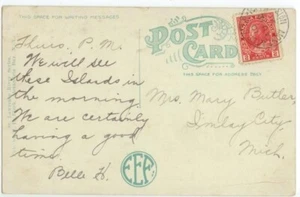 THIS SPACE FOR WRITING MESSAGES
POST CARD
THIS SPACE FOR ADDRESS ONLY
Thurs. P.M.
We will see
these Islands in
the morning.
We are certainly
having a good
time.
Belle K.
Mrs. Mary Butler
Imlay City,
Mich.